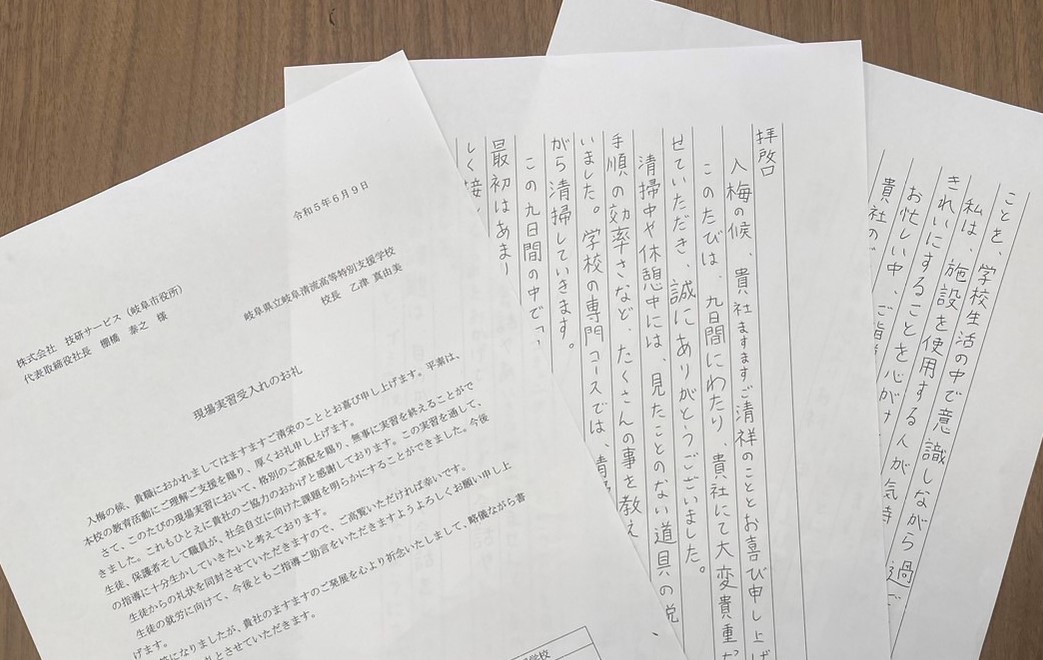 令和5年6月9日
株式会社　技研サービス（岐阜市役所）
代表取締役社長　棚橋　泰之　様
岐阜県立岐阜清流高等特別支援学校
校長　乙津 真由美
現場実習受入れのお礼
入梅の候、貴職におかれましてはますますご清栄のこととお喜び申し上げます。平素は、
本校の教育活動にご理解ご支援を賜り、厚くお礼申し上げます。
さて、このたびの現場実習において、格別のご高配を賜り、無事に実習を終えることがで
きました。これもひとえに貴社のご協力のおかげと感謝しております。この実習を通して、
生徒、保護者そして職員が、社会自立に向けた課題を明らかにすることができました。今後
の指導に十分生かしていきたいと考えております。
生徒からの礼状を同封させていただきますので、ご高覧いただければ幸いです。
生徒の就労に向けて、今後ともご指導ご助言をいただきますようよろしくお願い申し上
げます。
になりましたが、貴社のますますのご発展を心より祈念いたしまして、略儀ながら書
とさせていただきます。
学校
拝啓
入梅の候、貴社ますますご清祥のこととお喜び申し上げ
このたびは、九日間にわたり、貴社にて大変貴重な
せていただき、誠にありがとうございました。
清掃中や休憩中には、見たことのない道具の説
手順の効率さなど、たくさんの事を教え
いました。学校の専門コースでは、清
がら清掃していきます。
この九日間の中で、
最初はあまり
しく接
ことを、学校生活の中で意識しながら過ご
私は、施設を使用する人が気持
きれいにすることを心がけ
お忙しい中、ご指導
貴社の